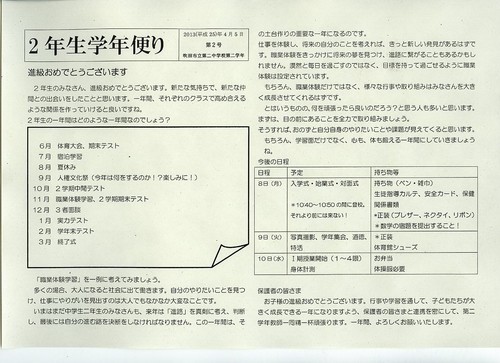 2年生学年便り
2013(平成25)年4月5日
第2号
吹田市立第二中学校第二学年
進級おめでとうございます
2年生のみなさん、進級おめでとうございます。新たな気持ちで、新たな仲
間との出会いをしたことと思います。一年間、それぞれのクラスで高め合える
ような関係を作っていけると良いですね。
2年生の一年間はどのような一年間なのでしょう？
6月 体育大会、期末テスト
7月 宿泊学習
8月 夏休み
9月 人権文化祭（今年は何をするのか！？楽しみに！）
10月 2学期中間テスト
11月 職業体験学習、2学期期末テスト
12月 3者面談
1月 実力テスト
2月 学年末テスト
3月 終了式
「職業体験学習」を一例に考えてみましょう。
多くの場合、大人になると社会に出て働きます。自分のやりたいことを見つ
け、仕事にやりがいを見出すのは大人でもなかなか大変なことです。
いまはまだ中学二年生のみなさんも、来年は「進路」を真剣に考え、判断
し、最後には自分の進む路を決断をしなければなりません。この一年間は、そ
の土台作りの重要な一年になるのです。
仕事を体験し、将来の自分のことを考えれば、きっと新しい発見があるはずで
す。職業体験をきっかけに将来の夢を見つけ、進路に繋がることもあるかもし
れません。漠然と毎日を過ごすのではなく、目標を持って過ごせるように職業
体験は設定されています。
もちろん、職業体験だけではなく、様々な行事や取り組みはみなさんを大き
く成長させてくれるはずです。
とはいうものの、何を頑張ったら良いのだろう？と思う人も多いと思います。
まずは、目の前にあることを全力で取り組みましょう。
そうすれば、おのずと自分自身のやりたいことや課題が見えてくると思います。
もちろん、学習面だけでなく、心も、体も鍛える一年間にしていきましょう
ね。
今後の日程
日程 予定 持ち物等
8日（月） 入学式・始業式・対面式 持ち物（ペン・雑巾）
生徒指導カルテ、安全カード、保健
＊1040～1050の間に登校、 関係書類
それより前には来ない！ ＊正装（ブレザー、ネクタイ、リボン）
＊数学の宿題を提出すること！
9日（火） 写真撮影、学年集会、道徳、 ＊正装
特活 体育館シューズ
10日（水） 1期授業開始（1～4限） お弁当
身体計測 体操服必要
保護者の皆さま
お子様の進級おめでとうございます。行事や学習を通して、子どもたちが大
きく成長できる一年になりますよう、保護者の皆さまと連携を密にして、第二
学年教師一同精一杯頑張ります。一年間、よろしくお願いいたします。